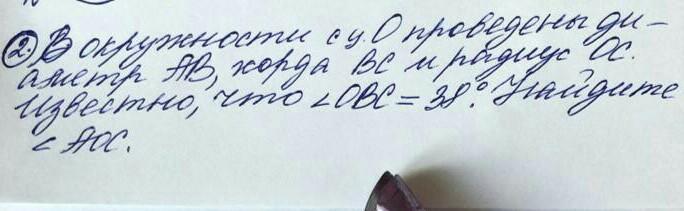 2. В окружности с ц. О проведены ди-
аметр АВ, хорда ВС и радиус ОС.
Известно, что ∠ОВС = 38°. Найдите
∠АОС.